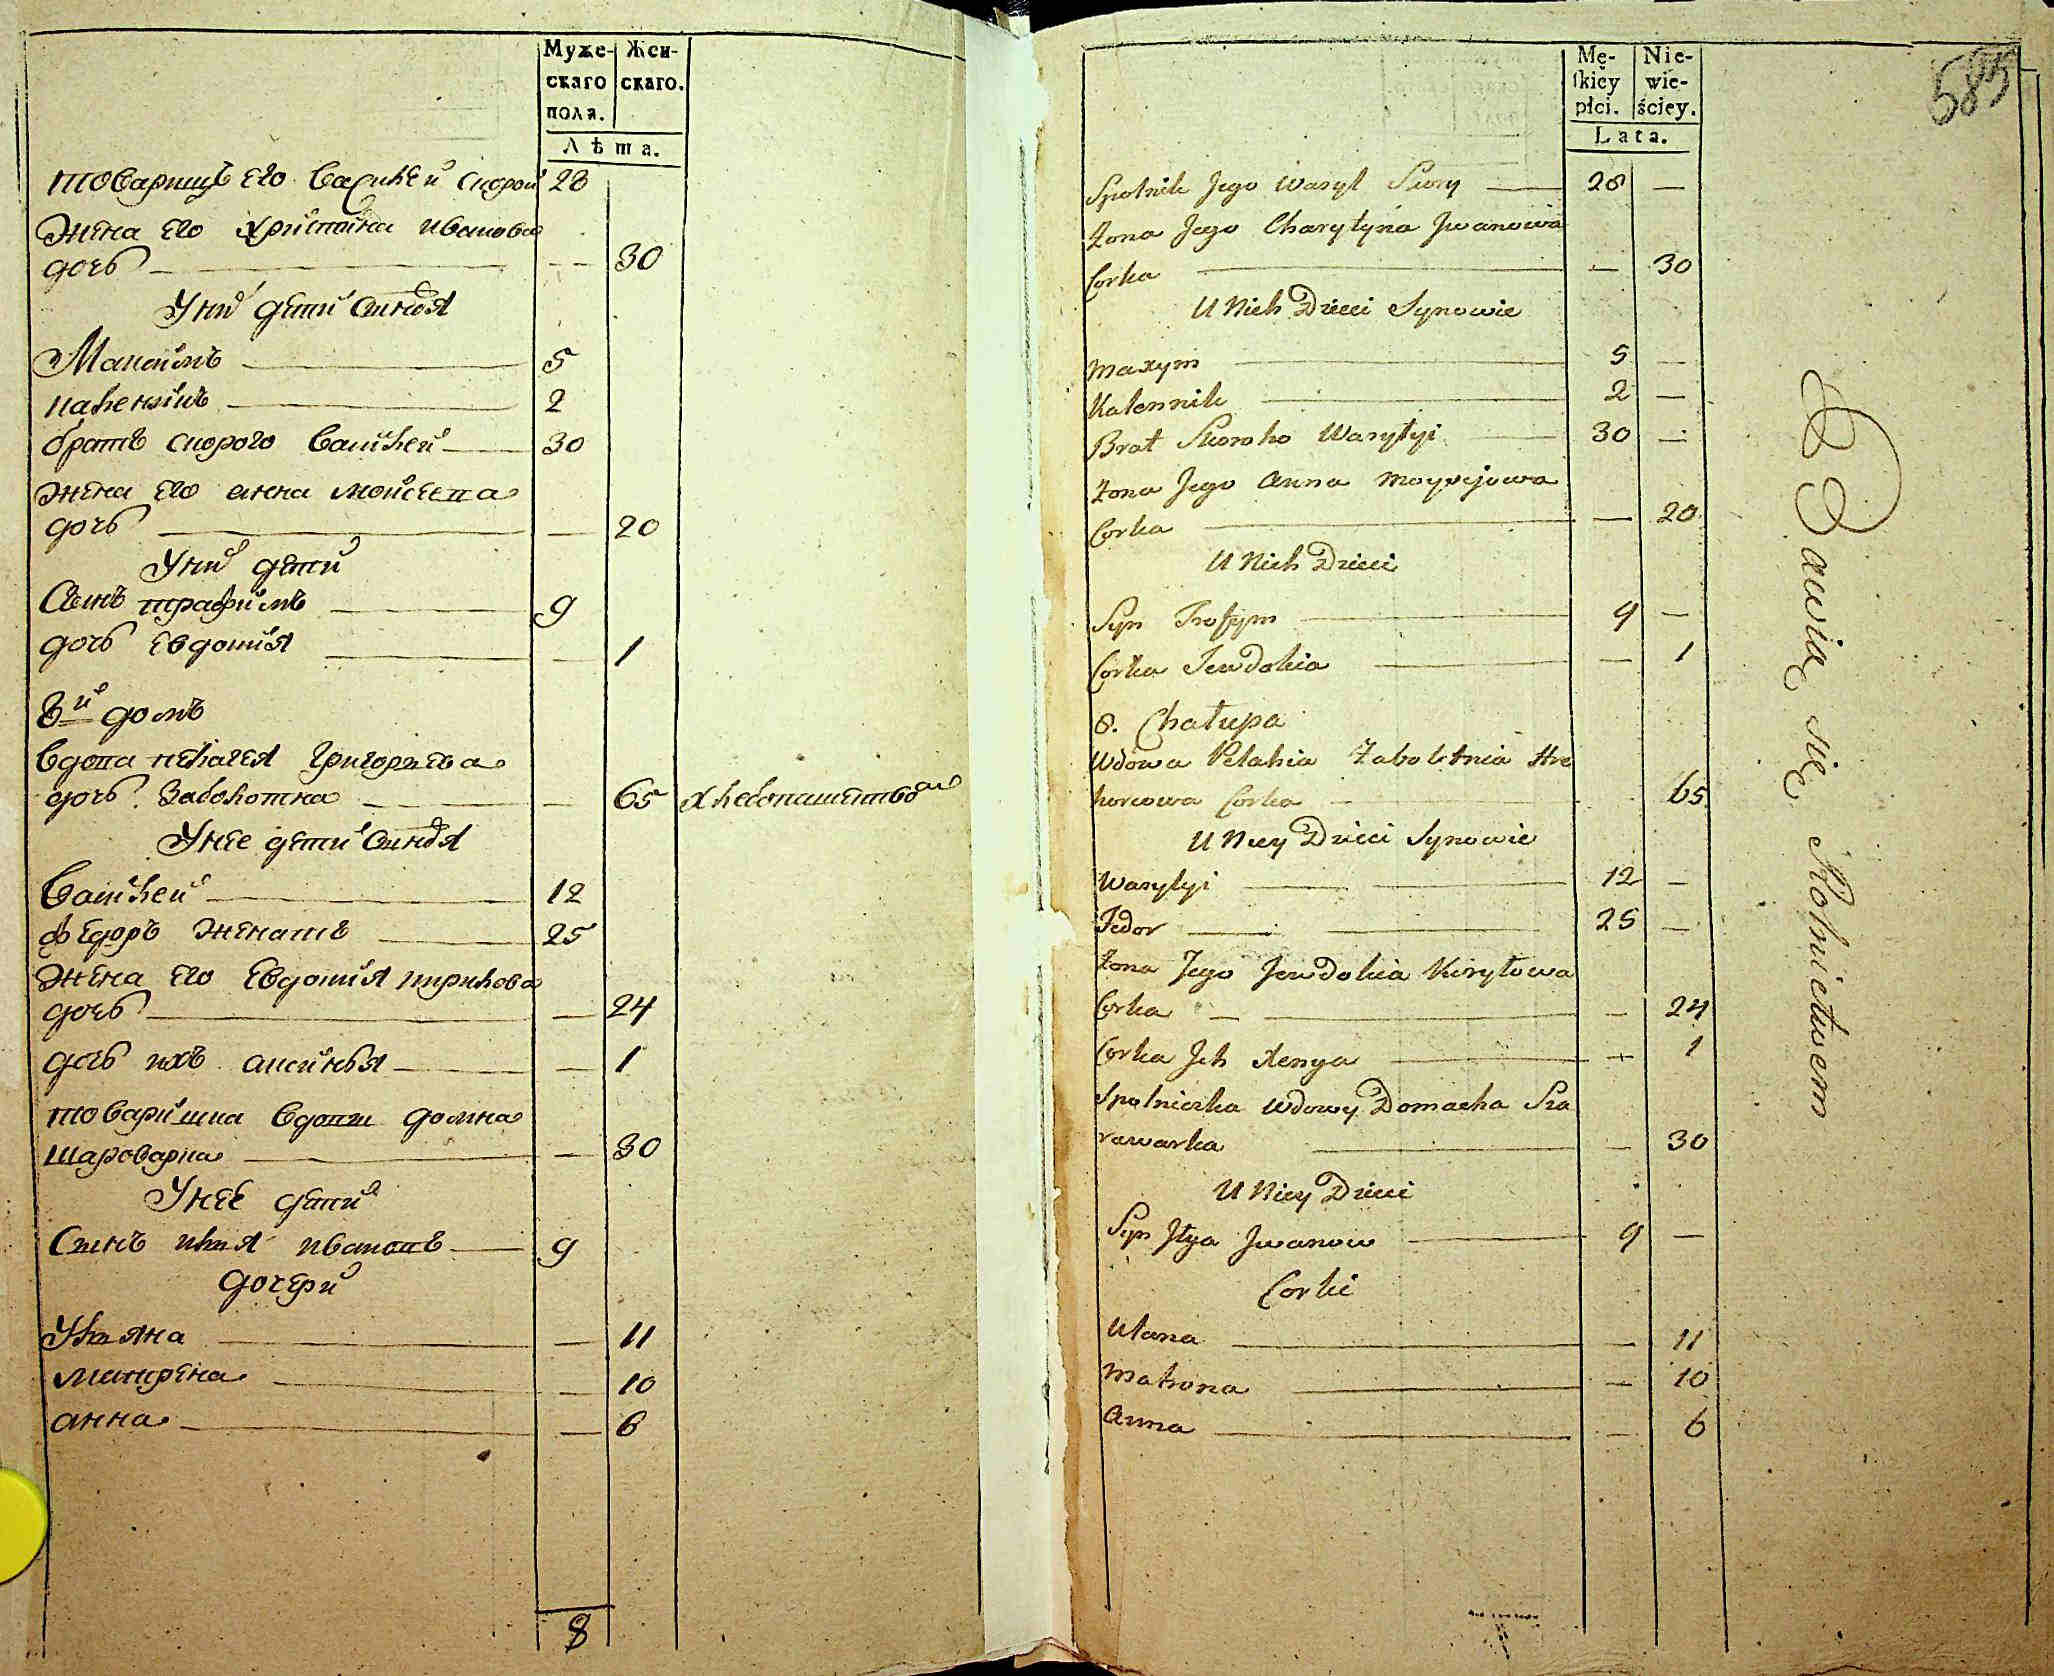 Муже-
скаго
пола.
Жен-
скаго.
Лѣта.
товарищъ его Василей скорой 28
жена его христина иванова
дочь 30
Унихъ дети синовя
Максимъ 5
каленикъ 2
братъ скорого Василей 30
жена его анна моисеева
дочь 20
Унихъ дети
Синъ трафимъ 9
дочь Евдокия 1
8й домъ
вдова пелагея григориева
дочь Заболотна 65 хлебопашествомъ
Унее дети синовя
Василей 12
федоръ женатъ 25
жена его Евдокия кирилова
дочь 24
дочь ихъ аксинья 1
товаришка вдови домна
шароварка 30
Унее дети
Синъ илия ивановъ 9
дочери
Уляна 11
матрена 10
анна 6
8
Mę-
skiéy
płci.
Nie-
wie-
ściey.
Lata.
585
Spolnik Jego Wasyl Skory 28 —
Żona Jego Charytyna Jwanowa
Corka — 30
U Nich Dzieci Synowie
Maxym 5 —
Kalennik 2 —
Brat Skoroho Wasylyi 30 —
Żona Jego Anna Moysejowa
Corka — 20
U Nich Dzieci
Syn Trofym 9 —
Corka Jewdokia — 1
8. Chałupa
Wdowa Pelahia Zabolotnia Hre
horowa Corka 65
U Niey Dzieci Synowie
Wasylyi 12 —
Fedor 25 —
Żona Jego Jewdokia Kiryłowa
Corka — 24
Corka Jch Xenya — 1
Spolniczka Wdowy Domacha Sza
rawarka — 30
U Niey Dzieci
Syn Jłya Jwanow 9 —
Corki
Ulana — 11
Matrona — 10
Anna — 6
Bawią się Rolnictwem